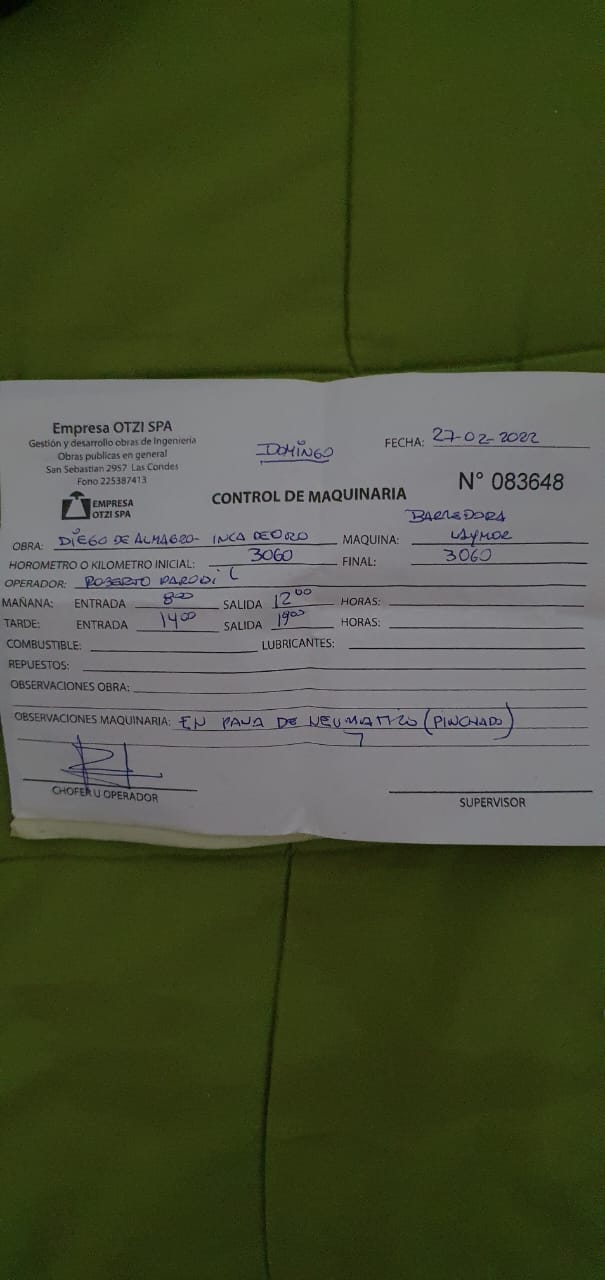 Empresa OTZI SPA
Gestión y desarrollo obras de Ingenieria
Obras publicas en general
San Sebastian 2957 Las Condes
Fono 225387413
EMPRESA
OTZI SPA
DOMINGO
FECHA: 27-02-2022
N° 083648
CONTROL DE MAQUINARIA
BARREDORA
OBRA: DIEGO DE ALMAGRO- INCA DE ORO MAQUINA: LAYMOR
HOROMETRO O KILOMETRO INICIAL: 3060 FINAL: 3060
OPERADOR: ROBERTO PARODI C
MAÑANA: ENTRADA 8:00 SALIDA 12:00 HORAS:
TARDE: ENTRADA 14:00 SALIDA 19:00 HORAS:
COMBUSTIBLE: LUBRICANTES:
REPUESTOS:
OBSERVACIONES OBRA:
OBSERVACIONES MAQUINARIA: EN PANA DE NEUMATICO (PINCHADO)
CHOFER U OPERADOR
SUPERVISOR